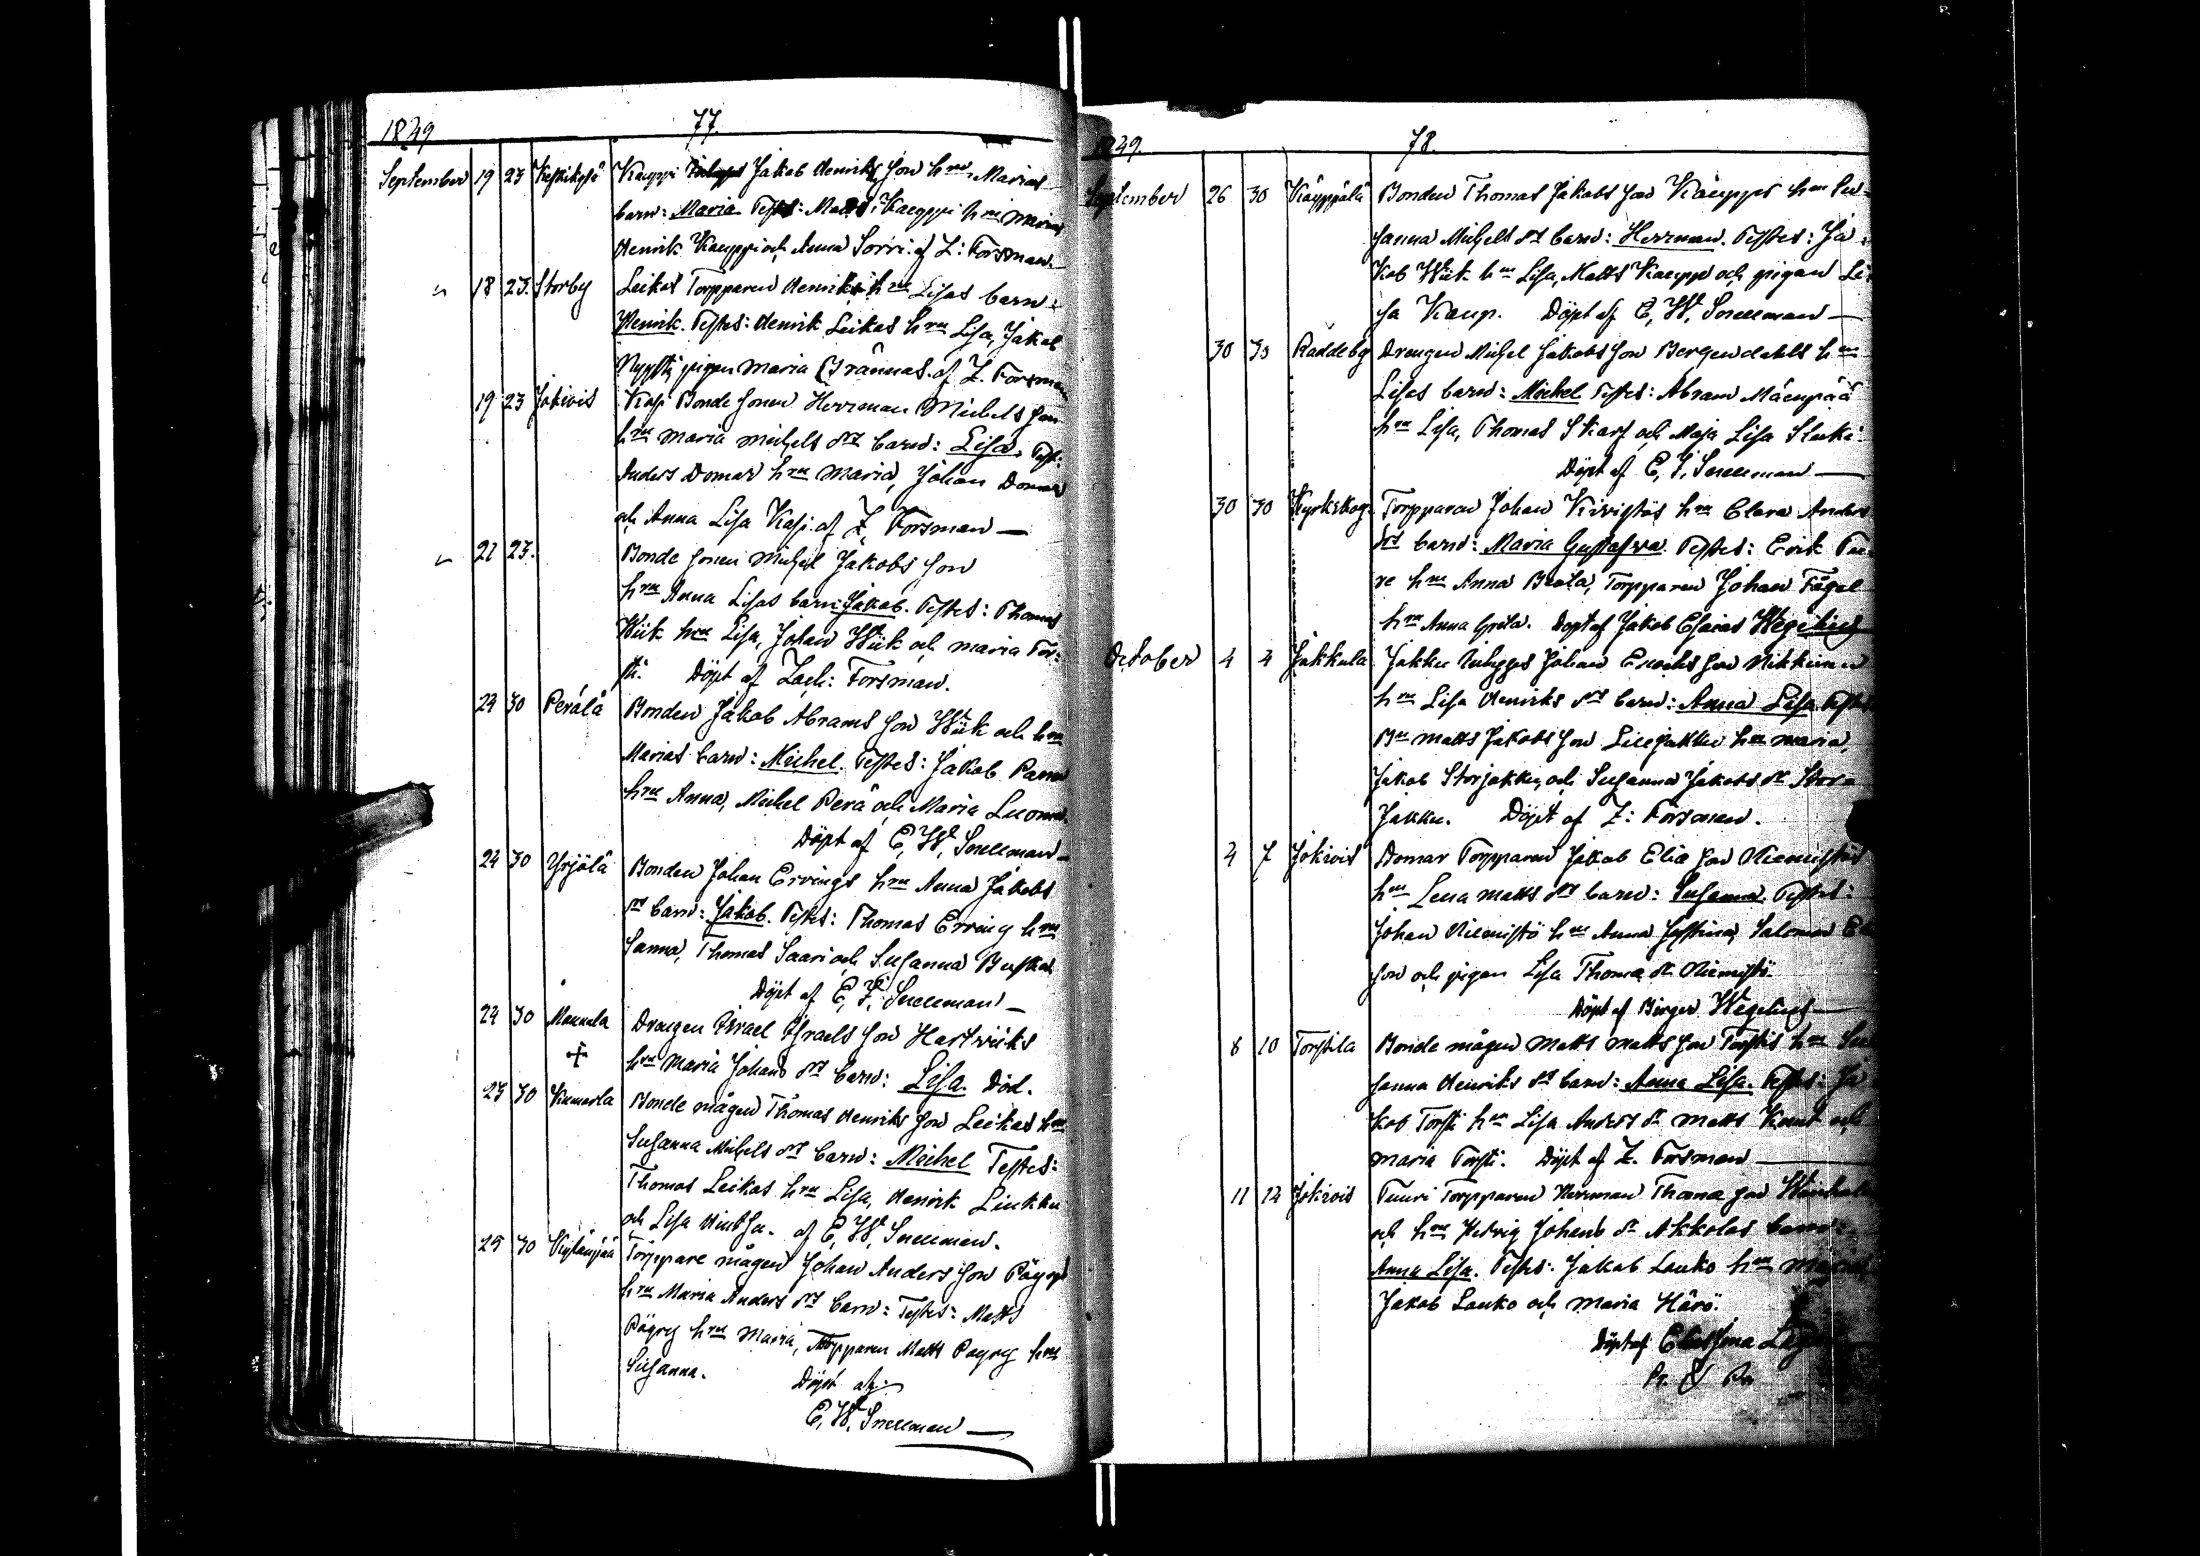 1849
77.
September 19 23 Keskikylä Kauppi Jakob Henriks son hru Marias
barn: Maria Testes: Matts Kauppi hru Maria
Henrik Kauppi och Anna Sorri. af Z: Forsman
18 23. Storby Leikas Torpparen Henriks hru Lisas barn:
Henrik. Testes: Henrik Leikas hru Lisa, Jakob
pigan Maria Brännas. af Z. Forsman
19 23 Jokivis Kasi Bonde sonen Herrman Michels son
hru Maria Michels drs barn: Lisa. Test:
Anders Domar hru Maria, Johan Domar
och Anna Lisa Kasi. af Z. Forsman
21 23. Bonde sonen Michel Jakobs son
hru Anna Lisas barn: Jakob. Testes: Thomas
Wiik hru Lisa, Johan Wiik och Maria Tor-
sti. Döpt af Zach: Forsman.
24 30 Perälä Bonden Jakob Abrams son Wiik och hru
Marias barn: Michel. Testes: Jakob
hru Anna, Michel Perä och Maria Luoma.
Döpt af E, W, Snellman
24 30 Yrjölä Bonden Johan Ervings hru Anna Jakobs
drs barn: Jakob. Testes: Thomas Erving hru
Sanna, Thomas Saari och Susanna
Döpt af E, F, Snellman
24 30 Mannala Drengen Israel Israels son Hartviks
hru Maria Johans drs barn: Lisa. Död.
23 30 Bonde mågen Thomas Henriks son Leikas hru
Susanna Michels drs barn: Michel Testes:
Thomas Leikas hru Lisa, Henrik Liukku
och Lisa af E, W, Snellman.
25 30 Torppare mågen Johan Anders son Päyry
hru Maria Anders drs barn: Testes: Matts
Päyry hru Maria, Torpparen Matts Päyry hru
Susanna. Döpt af
E, W, Snellman
1849.
78.
September 26 30 Käyppälä Bonden Thomas Jakobs son Käuppi hru Su-
sanna Michels drs barn: Herrman. Testes: Ja-
kob Wiik hru Lisa, Matts Kaupp och pigan Li-
sa Kaup. Döpt af E, W, Snellman
30 30 Räddeby Drengen Michel Jakobs son Bergendahls hru
Lisas barn: Michel Testes: Abram Mäenpää
hru Lisa, Thomas Skarf och Maja Lisa
Döpt af E, F, Snellman
30 30 Kyrkskog. Torpparen Johan Kivistös hru Clara Anders
drs barn: Maria Gustafva. Testes: Erik Tuu-
re hru Anna Beata, Torpparen Johan Fågel
hru Anna Greta. Döpt af Jakob Esaias Wegelius
October 4 4 Jakkula Jakku Inhyses Johan Enochs son Nikkunen
hru Lisa Henriks drs barn: Anna Lisa. Testes
Bn Matts Jakobs son Lilljakku hru Maria,
Jakob Storjakku, och Susanna Jakobs dr Stor-
Jakku. Döpt af Z: Forsman.
4 7 Jokivis Domar Torpparen Jakob Elia son Niemistös
hru Lena Matts drs barn: Susanna. Testes:
Johan Niemistö hru Anna Justina, Salomon
son och pigan Lisa Thoma dr Niemistö
Döpt af Birger Wegelius
8 10 Torstila Bonde mågen Matts Matts son Torstis hru Su-
sanna Henriks drs barn: Anna Lisa. Testes: Ja-
kob Torsti hru Lisa Anders dr Matts Knut och
Maria Torsti. Döpt af Z. Forsman
11 14 Jokivis Tuuri Torpparen Herrman Thoma son
och hru Hedvig Johans dr Akkolas barn:
Anna Lisa. Testes: Jakob Lauko hru Maria,
Jakob Lauko och Maria Härö.
Döpt af